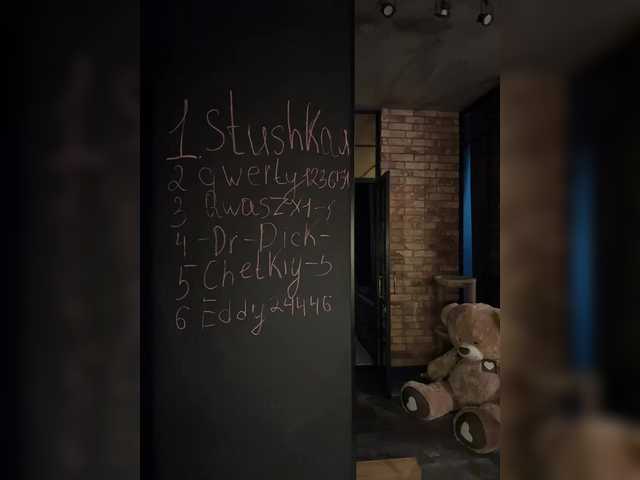 1 Stushkax
2 qwerty1236151
3 Qwaszx1-5
4 -Dr-Dick-
5 Chetkiy-5
6 Eddy24446